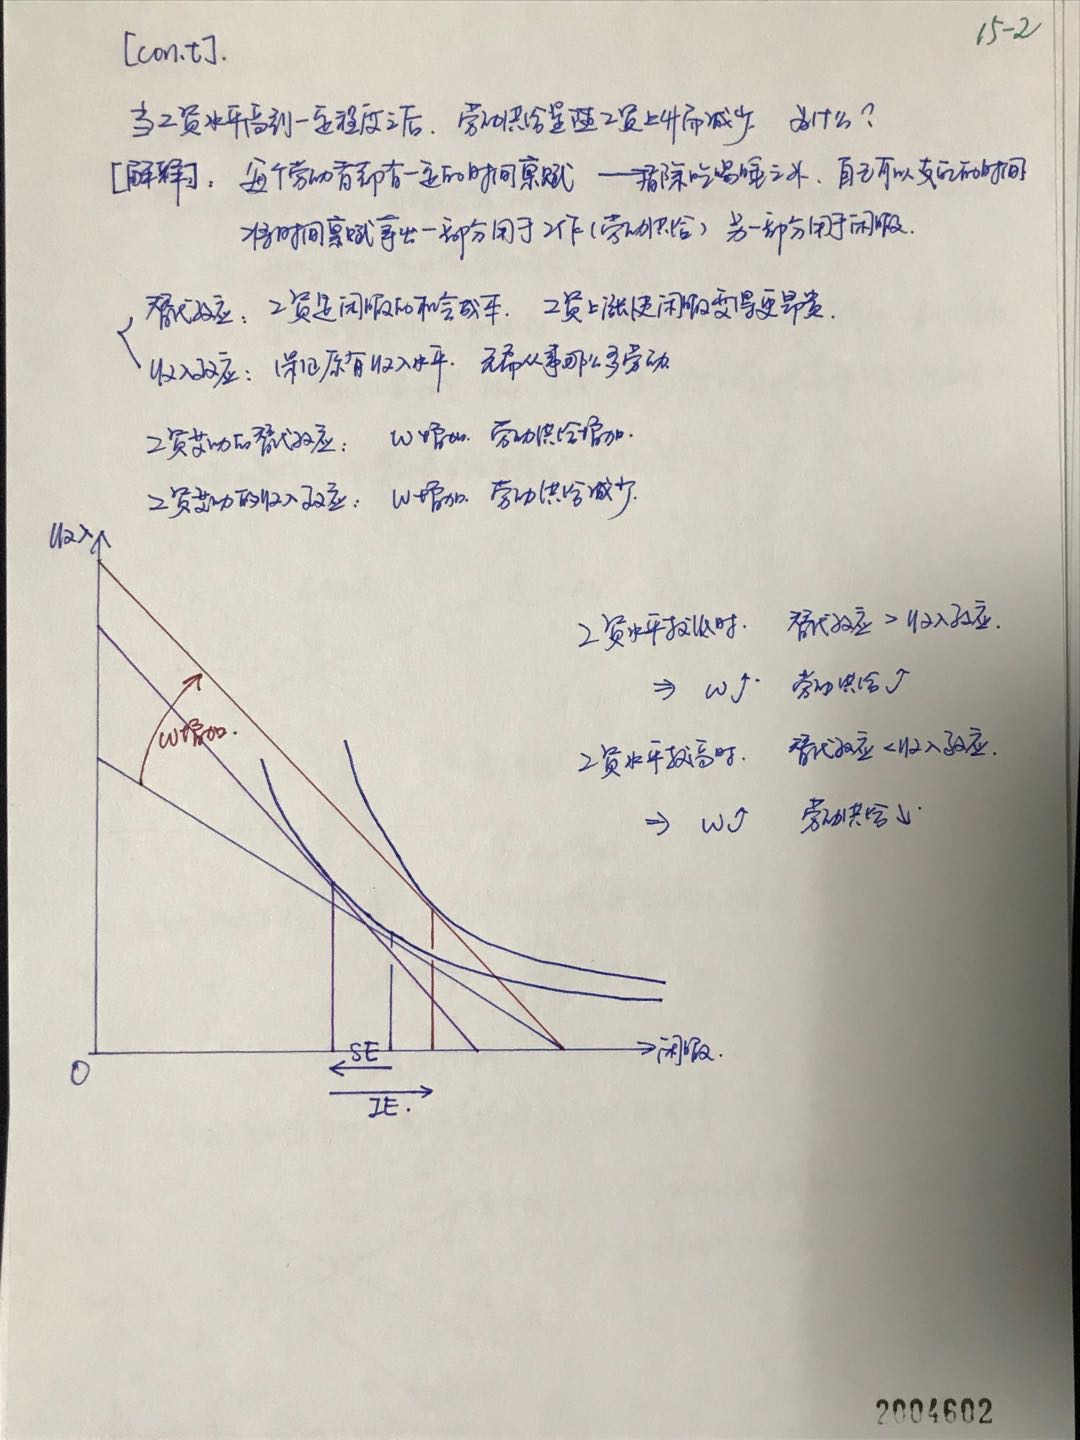 15-2
[con.t].
当工资水平高到一定程度之后，劳动供给量随工资上升而减少，为什么？
[解释]：每个劳动者都有一定的时间禀赋 ——指除吃喝睡之外，自己可以支配的时间
将时间禀赋拿出一部分用于工作(劳动供给) 另一部分用于闲暇.
替代效应：工资是闲暇的机会成本. 工资上涨使闲暇变得更昂贵.
收入效应：保证原有收入水平. 无需从事那么多劳动.
工资变动的替代效应： W增加. 劳动供给增加.
工资变动的收入效应： W增加. 劳动供给减少.
收入
工资水平较低时. 替代效应 > 收入效应.
⇒ W↑. 劳动供给↑
W增加.
工资水平较高时. 替代效应 < 收入效应.
⇒ W↑ 劳动供给↓.
O
SE
闲暇.
IE.
2004602